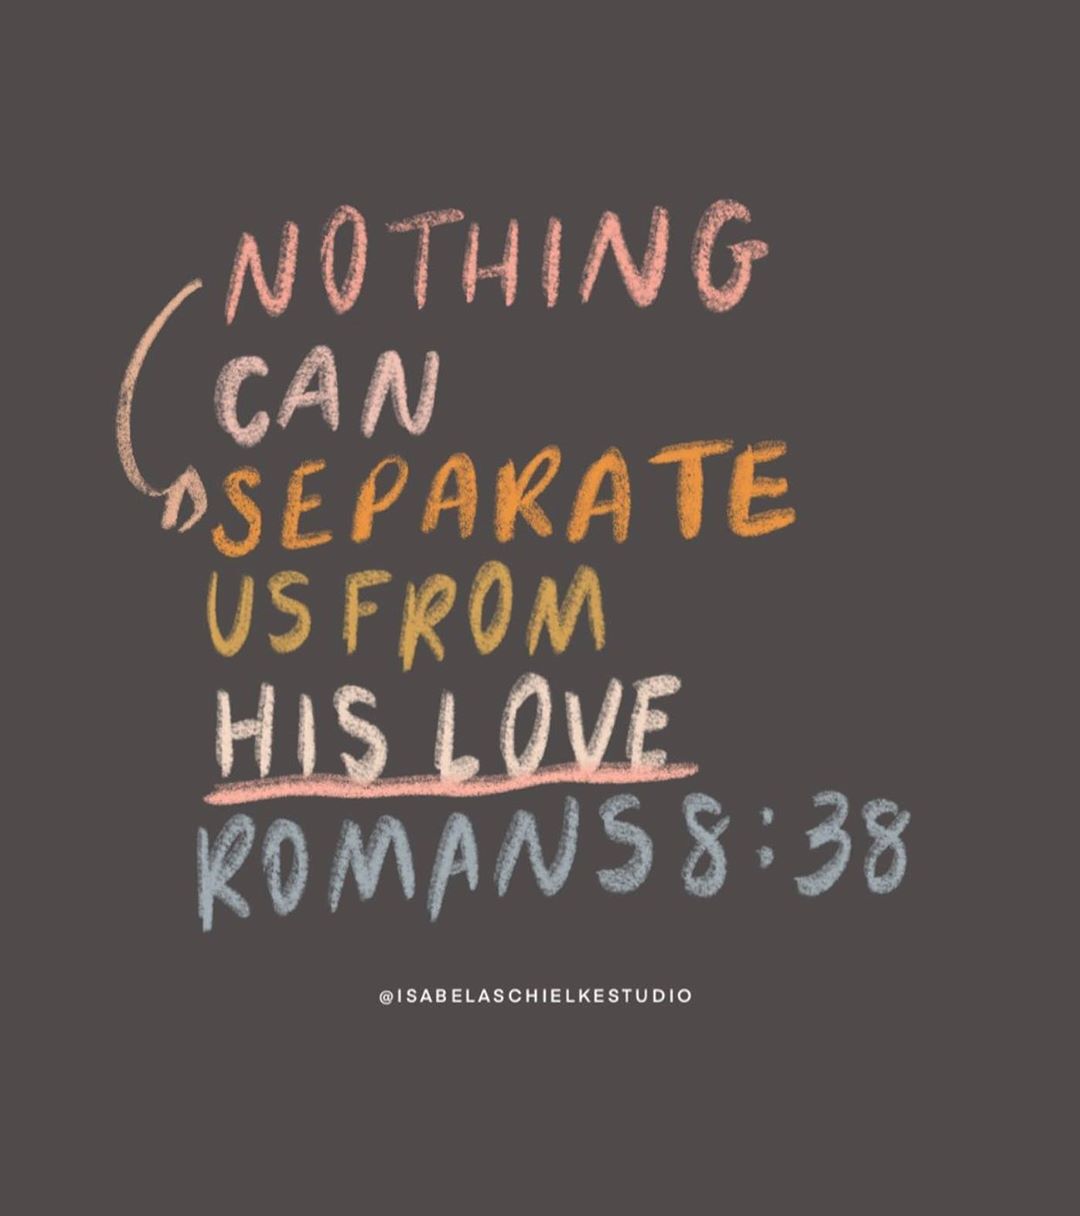 NOTHING
CAN
SEPARATE
US FROM
HIS LOVE
ROMANS 8:38
@ISABELASCHIELKESTUDIO